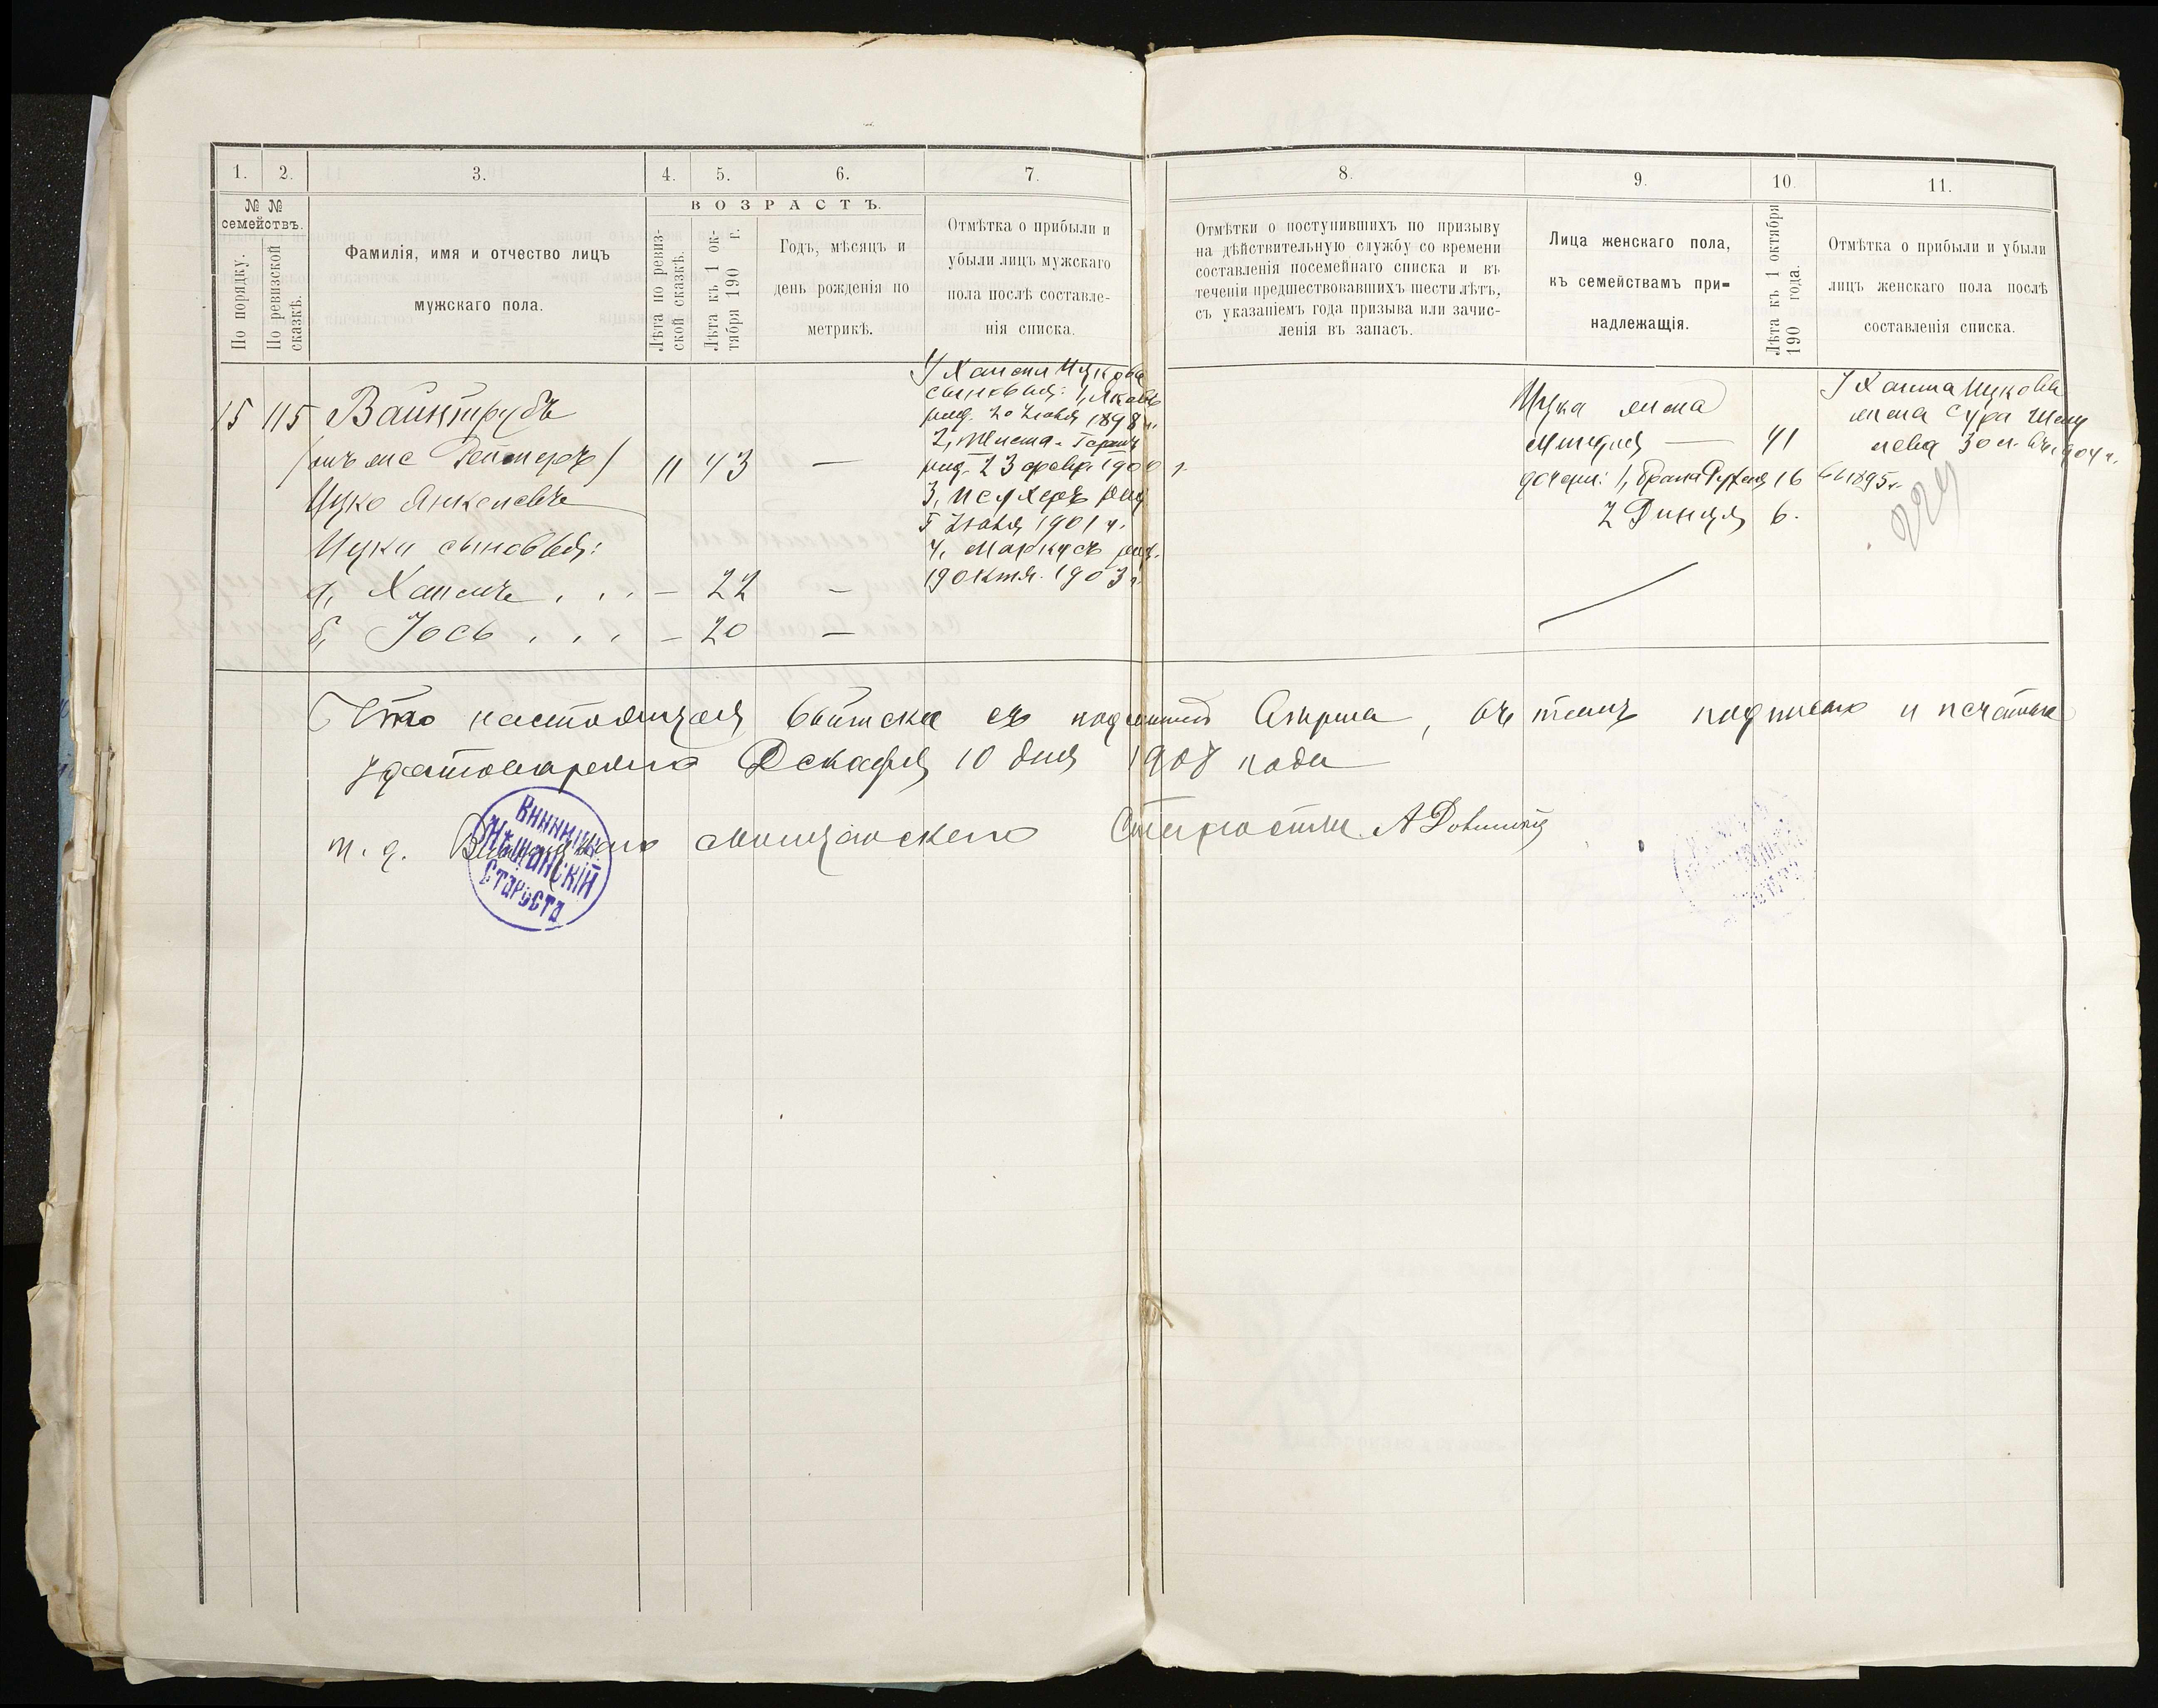 1. 2. 3. 4. 5. 6. 7. 8. 9. 10. 11.
№ №
семействъ.
По порядку.
По ревизской
сказкѣ.
Фамилія, имя и отчество лицъ
мужскаго пола.
ВОЗРАСТЪ.
Лѣта по ревиз-
ской сказкѣ.
Лѣта къ 1 ок-
тября 190 г.
Годъ, мѣсяцъ и
день рожденія по
метрикѣ.
Отмѣтка о прибыли и
убыли лицъ мужскаго
пола послѣ составле-
нія списка.
Отмѣтки о поступившихъ по призыву
на дѣйствительную службу со времени
составленія посемейнаго списка и въ
теченіи предшествовавшихъ шести лѣтъ,
съ указаніемъ года призыва или зачис-
ленія въ запасъ.
Лица женскаго пола,
къ семействамъ при-
надлежащія.
Лѣта къ 1 октября
190 года.
Отмѣтка о прибыли и убыли
лицъ женскаго пола послѣ
составленія списка.
15 115 Вайнтрубъ
(онъ же)
Ицко Янкелевъ 11 43 —
Ицки сыновья:
а, Хаимъ . . . — 22 —
б, Іось . . . — 20 —
У Хаима Ицкова
сыновья: 1, Яковъ
род. 20 1898 г.
2,
род. 23 февр. 1900 г.
3, род.
5 1901 г.
4, Маркусъ род.
19 октяб. 1903 г.
Ицка жена
Миндля — 41
дочери: 1, 16 въ 1895 г.
2 Динця 6.
У Хаима Ицкова
жена Сура
30 л. въ 1904 г.
229
Что настоящая выписка съ подлинной вѣрна, въ томъ подписью и печатью
удостовѣряю Декабря 10 дня 1908 года
и. д. Винницкаго мѣщанскаго Старосты
Винницк.
Мѣщанскій
Староста